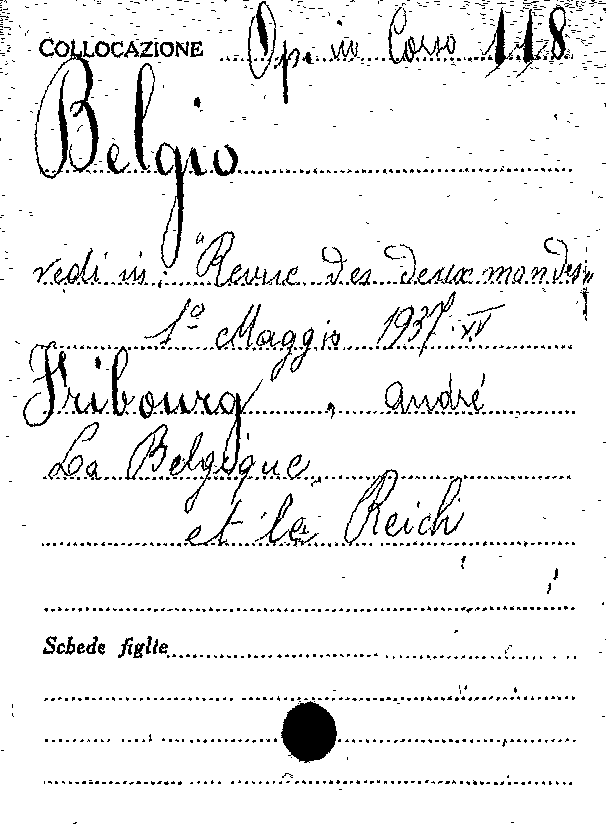 COLLOCAZIONE Op. in Corso 118
Belgio
vedi in: "Revue des deux mondes"
1º Maggio 1937.XV
Fribourg, andré
La Belgique
et le Reich
Schede figlie